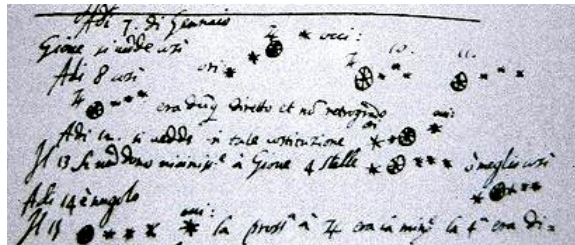 Adi 7. di Gennaio
Gioue si uedde così
ori: occi:
Adi 8 così
10. 11.
era dunq diretto et nõ retrogrado
Adi 12. si uedde in tale costituzione
Il 13 si uedono à Gioue 4 stelle ò meglio così
Adi 14 è nugolo
Il 15 la prossª à ♃ era la minͬ la 4ª era di=